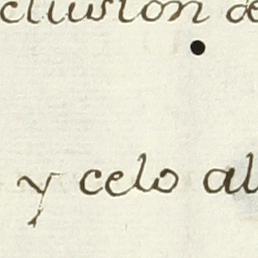 clusion de
y celo al